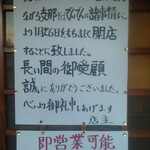 ながら支那そばてんてんは諸事情に
より1月26日をもちまして閉店
することに致しました。
長い間の御愛顧
誠にありがとうございました。
心より御礼申しあげます
店主
即営業可能